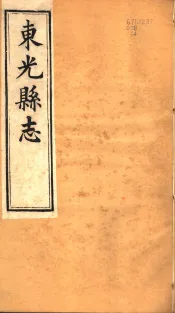 東光縣志